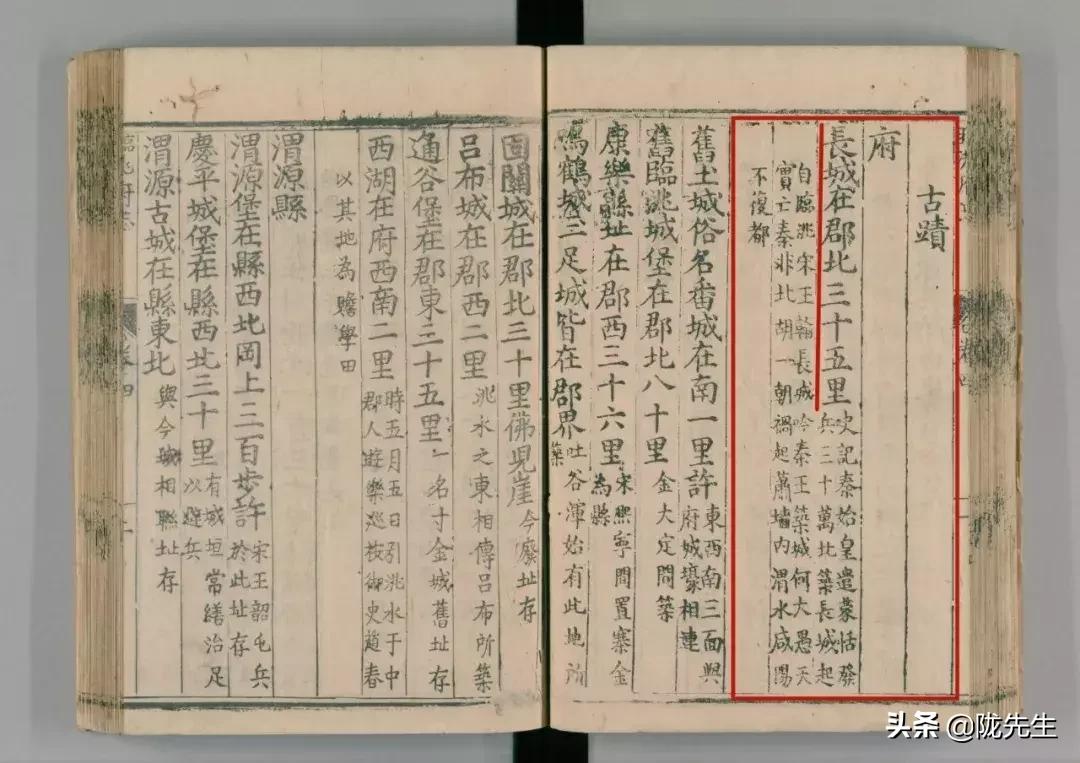 古蹟
府
長城在郡北三十五里
史記秦始皇遣蒙恬發
兵三十萬北築長城起
自臨洮宋王翰長城吟秦王築城何大愚天
實亡秦非北胡一朝禍起蕭墻內渭水咸陽
不復都
舊土城俗名番城在南一里許
東西南三面與
府城壕相連
舊臨洮城堡在郡北八十里金大定間築
康樂縣址在郡西三十六里
宋熙寧間置寨金
為縣
鳴鶴城三足城皆在郡界
吐谷渾始有此地所
築
固關城在郡北三十里佛見崖今廢址存
呂布城在郡西二里洮水之東相傳呂布所築
通谷堡在郡東三十五里一名寸金城舊址存
西湖在府西南二里
時五月五日引洮水于中
郡人遊樂巡按御史趙春
以其地為贍學田
渭源縣
渭源堡在縣西北岡上三百步許
宋王韶屯兵
於此址存
慶平城堡在縣西北三十里
有城垣常繕治足
以避兵
渭源古城在縣東北與今城相聯址存
臨洮府志
卷四
头条 @陇先生